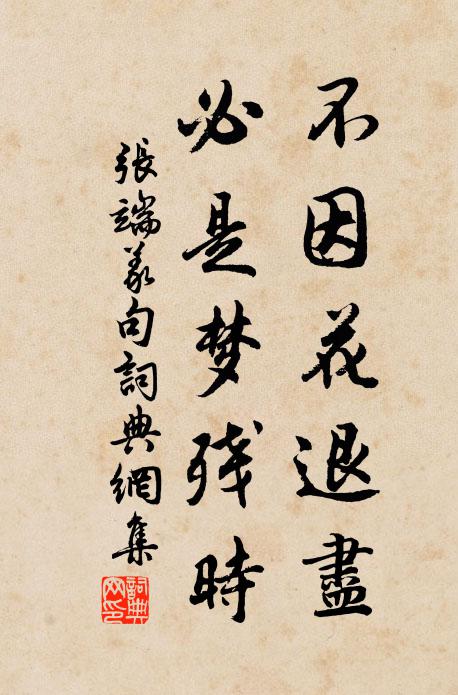 不因花退盡
必是梦残時
張端義句詞典網集
詞典网印